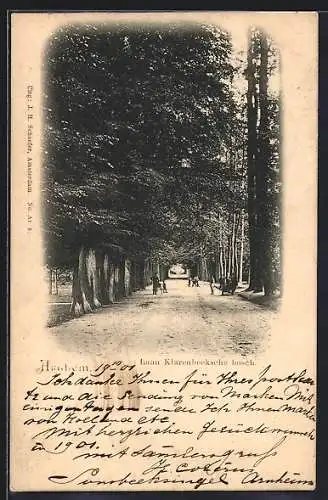 Uitg: J. H. Schaefer, Amsterdam No. Ar 4.
Laan Klarenbeeksche bosch.
Arnhem, 1901
Ich danke Ihnen für Ihres postkarte
und die Sendung von Marken Mit
einigen Tagen sende Ich Ihnen Marken
von Holland etc
Mit herzlichen Glückwunsch
in 1901.
mit Sammlergruß
Sonsbeeksingel Arnheim